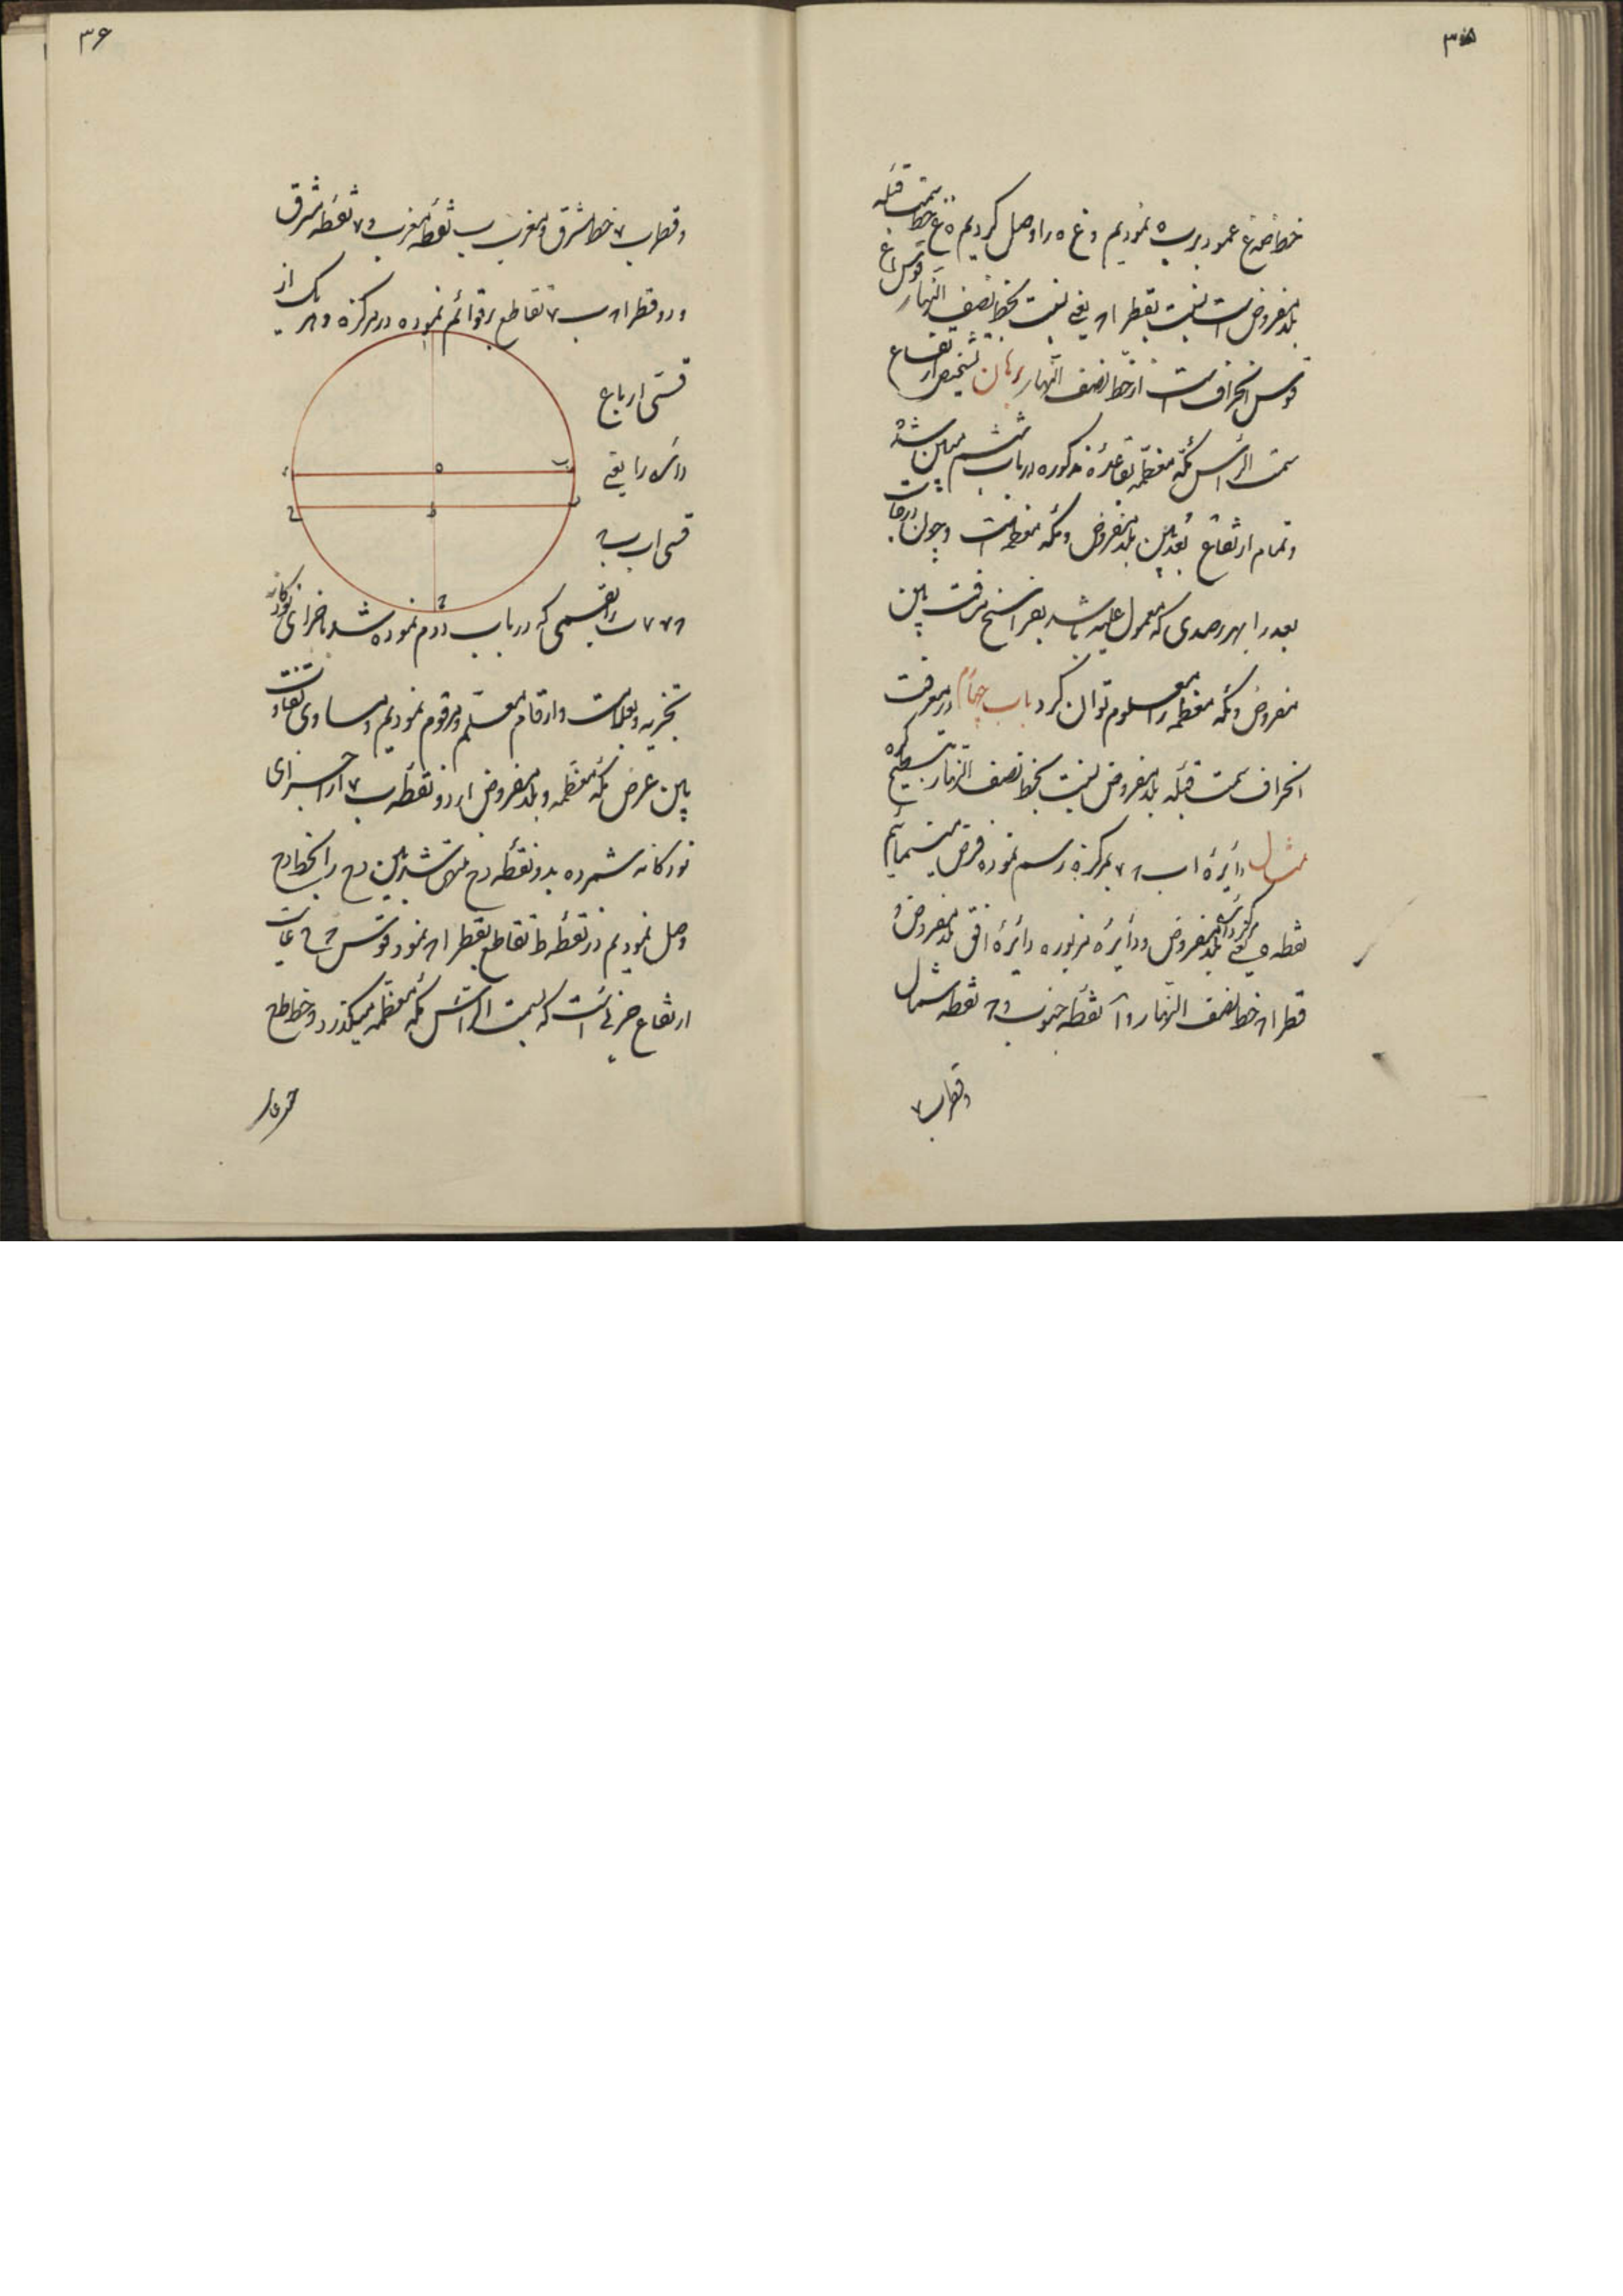 ۳۵
خط ضع عمود بر ب ه نمودیم و ع ه را وصل کردیم ه ع خط سمت قبله
بلد مفروض است نسبت بقطر ا ح یعنی نسبت بخط نصف النهار قوس ا ع
قوس انحراف است از خط نصف النهار برهان تشخیص ارتفاع
سمت الراس مکه معظمه بقاعدهٔ مذکوره در باب ششم مبین شد
و تمام ارتفاع بعد بین بلد مفروض و مکه معظمه است و چون درجات
بعد را بهر رصدی که معمول علیه باشد بفراسخ مسافت بین
مفروض و مکه معظمه را معلوم توان کرد باب چهارم در معرفت
انحراف سمت قبله بلد مفروض نسبت بخط نصف النهار بتسطیح کره
مثال دایرهٔ ا ب ح ۷ بمرکز ه رسم نموده فرض مینمائیم
نقطه ه یعنی مرکز دایره بلد مفروض و دایرهٔ مزبوره دایرهٔ افق بلد مفروض و
قطر ا ح خط نصف النهار و آ نقطه جنوب و ح نقطه شمال
و قطر ب ۷
۳۶
و قطر ب ۷ خط مشرق و مغرب ب نقطه مغرب و ۷ نقطه مشرق
و دو قطر ا ح ب ۷ تقاطع بر قوائم نموده در مرکز ه و هر یک از
قسی ارباع
دایره را یعنی
قسی ا ب ب ح
ح ۷ ۷ ا را بقسمی که در باب دوم نموده شد باجزای نودکانه
تجزیه و بعلامت و ارقام معلم و مرقوم نمودیم و مساوی تفاوت
بین عرض مکه معظمه و بلد مفروض از دو نقطه ب ۷ از اجزای
نودکانه شمرده بدو نقطه د ح منتهی شد بین د ح را بخط د ح
وصل نمودیم در نقطه ط تقاطع بقطر ا ح نمود قوس
ارتفاع جزئی است که بسمت الراس مکه معظمه میگذرد و خط ط ح